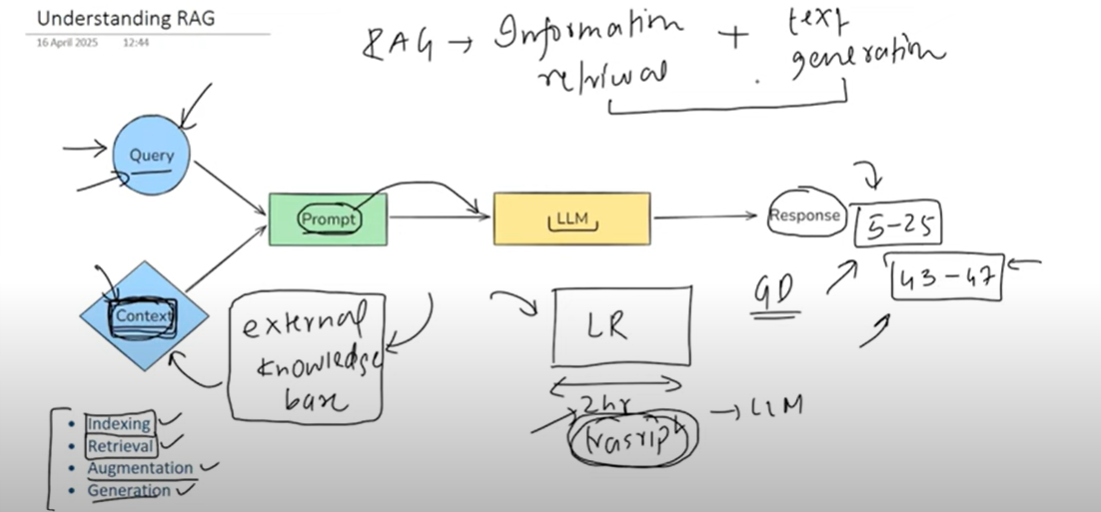 Understanding RAG
16 April 2025 12:44
RAG → Information retriwal + text generation
Query
Prompt
LLM
Response
5-25
43-47
Context
external
knowledge
base
GD
LR
2hr
trasript → LLM
• Indexing ✓
• Retrieval ✓
• Augmentation ✓
• Generation ✓